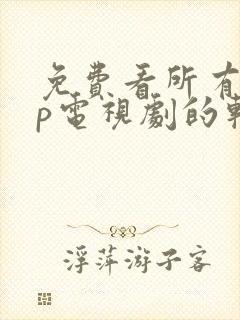 免費看所有
p電視劇的
浮萍游子客